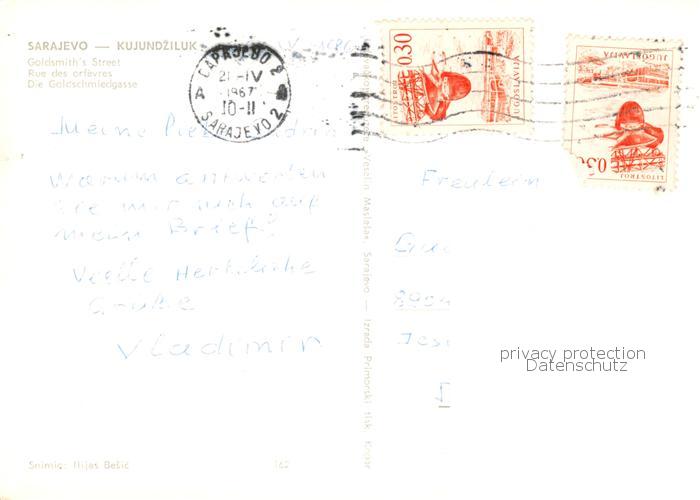 SARAJEVO — KUJUNDŽILUK
Goldsmith's Street
Rue des orfèvres
Die Goldschmiedgasse
САРАЈЕВО 2
21-IV
1967
10-11
A
SARAJEVO 2
0.30
LITOSTROJ
JUGOSLAVIJA
0.30
LITOSTROJ
JUGOSLAVIJA
Meine
Warum antworten
Sie mir nich auf
mein Brief?
Vielle Herzliche
Gruße
Vladimir
Freulein
privacy protection
Datenschutz
Veselin Masleša«, Sarajevo — Izrada Primorski tisk, Koper
Snimio: Ilijas Bešić
162